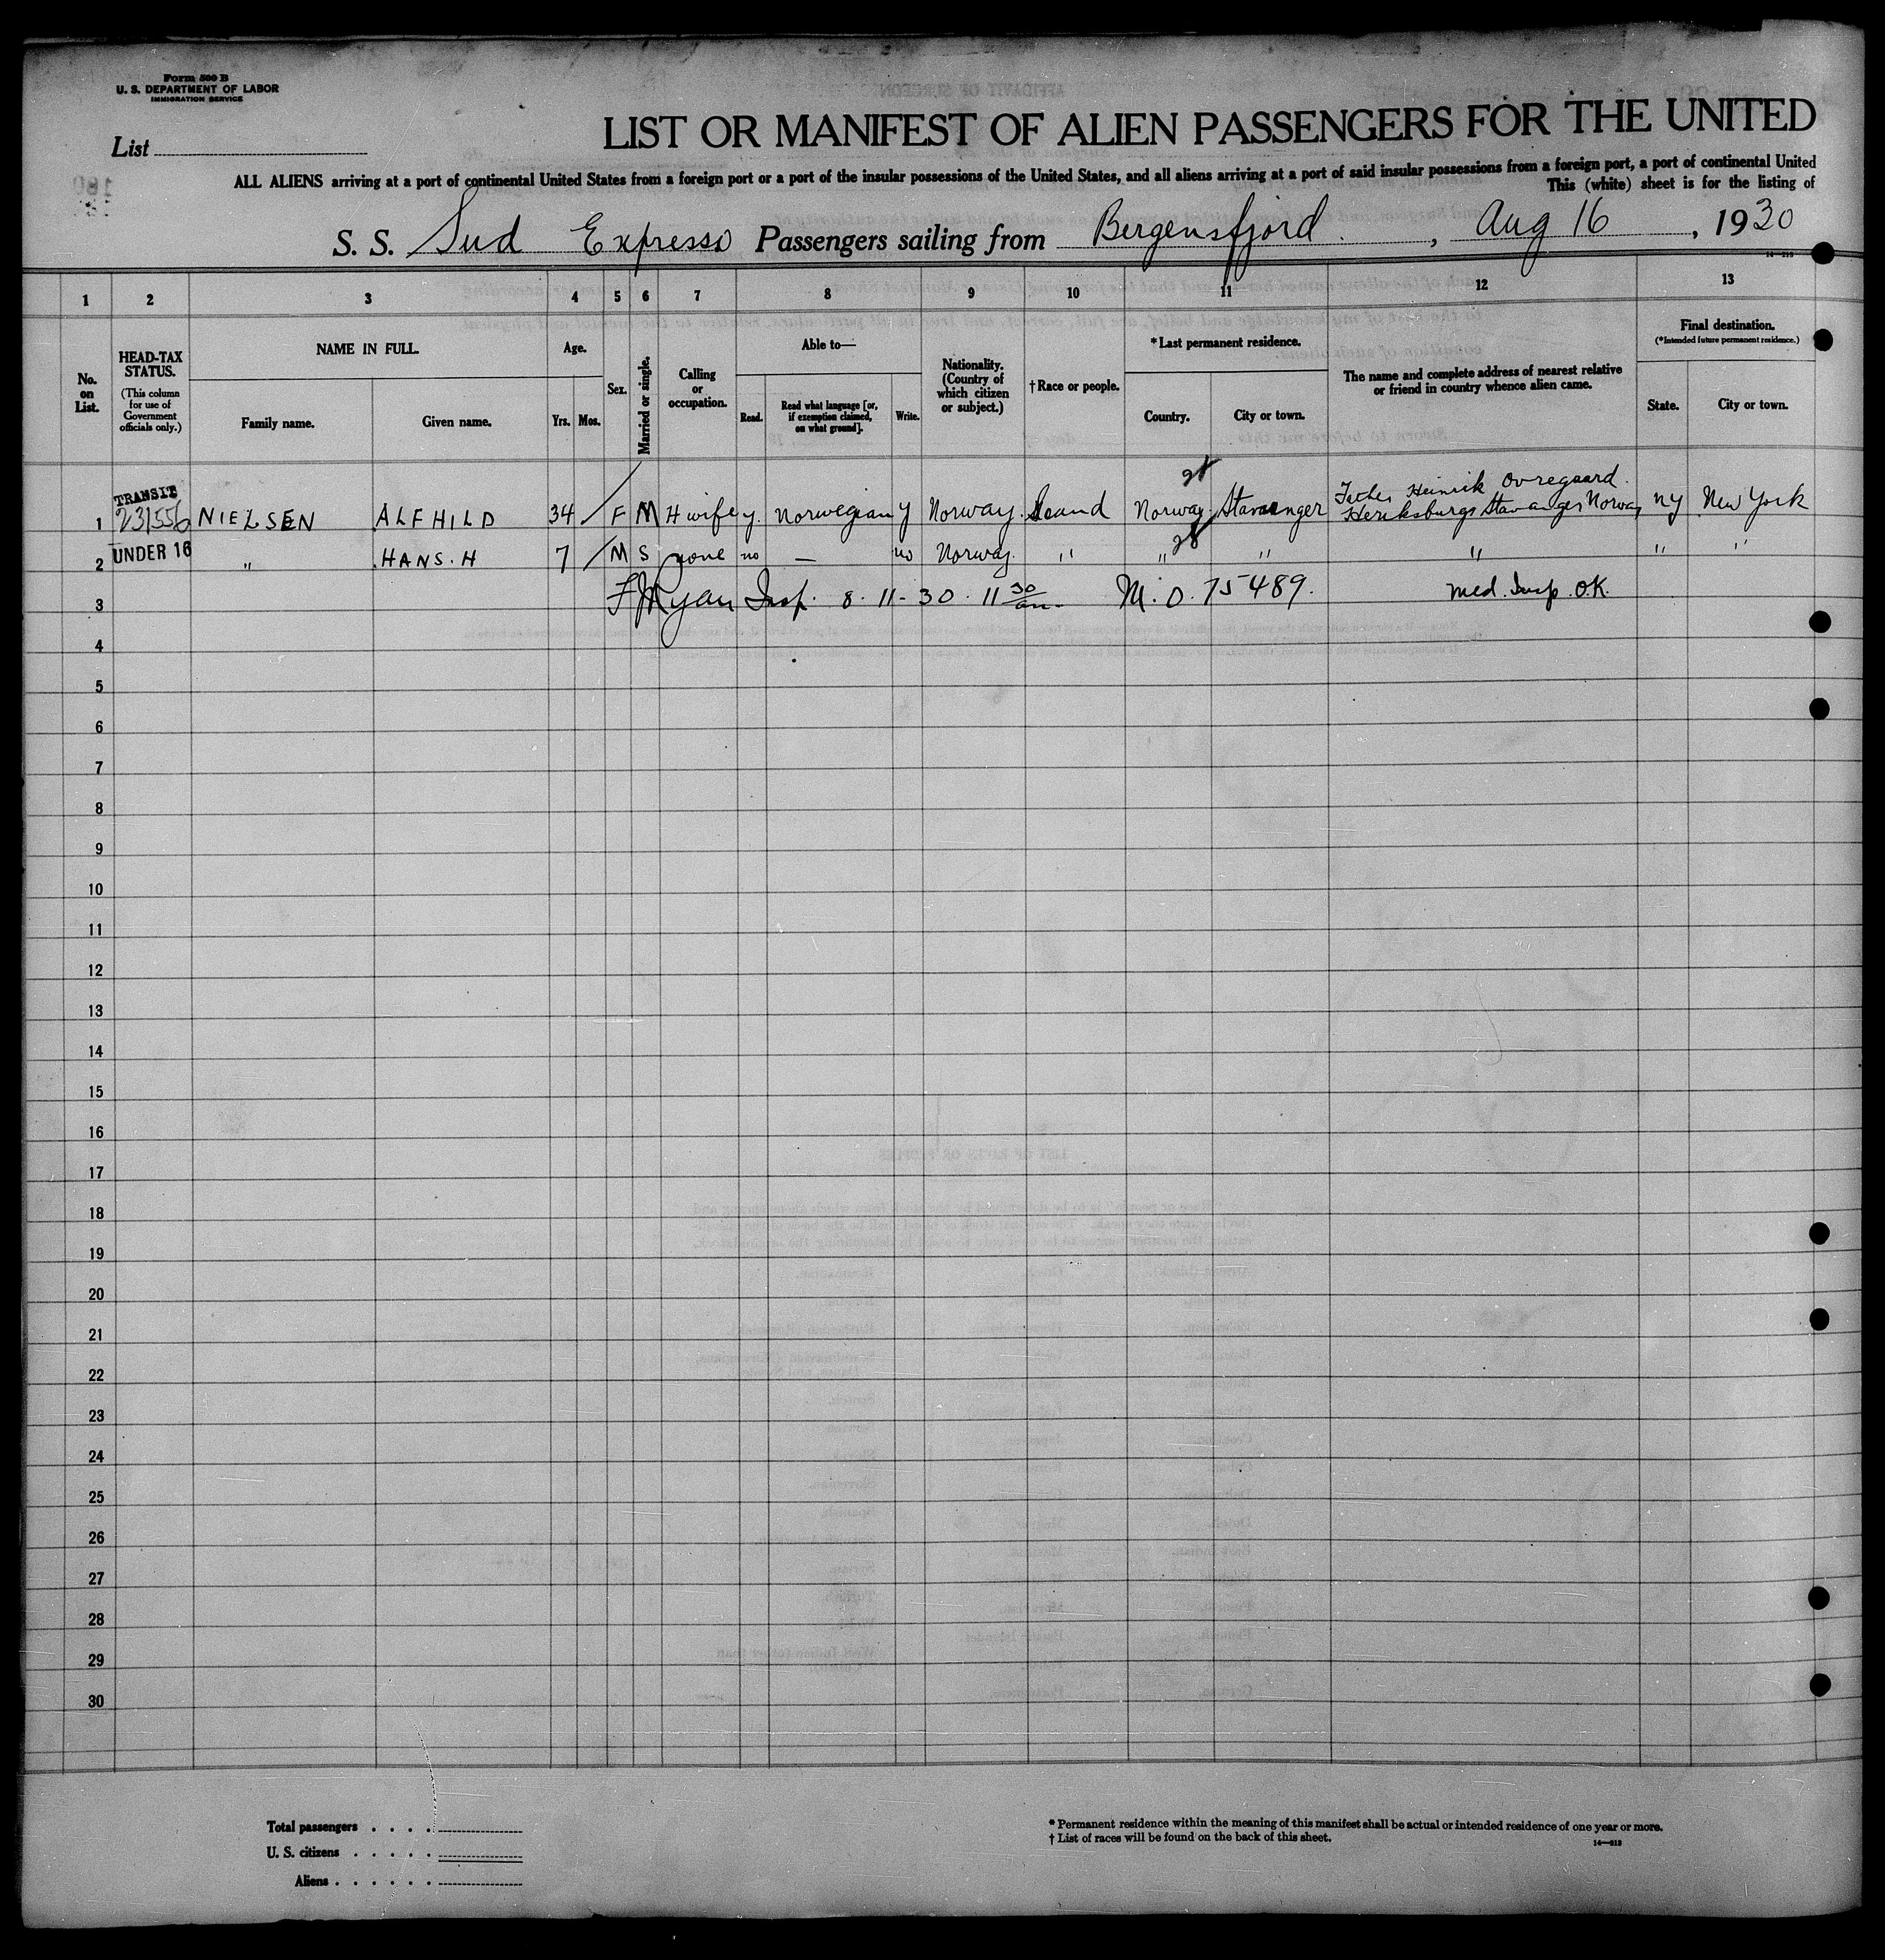 Form 500 B
U. S. DEPARTMENT OF LABOR
IMMIGRATION SERVICE
List
LIST OR MANIFEST OF ALIEN PASSENGERS FOR THE UNITED
ALL ALIENS arriving at a port of continental United States from a foreign port or a port of the insular possessions of the United States, and all aliens arriving at a port of said insular possessions from a foreign port, a port of continental United
This (white) sheet is for the listing of
S. S. Sud Expresso Passengers sailing from Bergensfjord, Aug 16, 1930
1 2 3 4 5 6 7 8 9 10 11 12 13
No. on List.
HEAD-TAX STATUS.
(This column for use of Government officials only.)
NAME IN FULL.
Family name.
Given name.
Age.
Yrs.
Mos.
Sex.
Married or single.
Calling or occupation.
Able to—
Read.
Read what language [or, if exemption claimed, on what ground].
Write.
Nationality. (Country of which citizen or subject.)
† Race or people.
* Last permanent residence.
Country.
City or town.
The name and complete address of nearest relative or friend in country whence alien came.
Final destination.
(*Intended future permanent residence.)
State.
City or town.
1 TRANSIT 231556 NIELSEN ALFHILD 34 F M Hwife y. Norwegian y Norway. Scand Norway Stavanger Father Heinrik Ovregaard. Stavanger Norway NY New York
2 UNDER 16 " HANS. H 7 M S none no — no Norway. " " " " " "
3 F J Ryan Insp. 8-11-30. 11 30 am. M.O. 75489. Med. Insp. O.K.
4
5
6
7
8
9
10
11
12
13
14
15
16
17
18
19
20
21
22
23
24
25
26
27
28
29
30
Total passengers . . . .
U. S. citizens . . . . .
Aliens . . . . . .
* Permanent residence within the meaning of this manifest shall be actual or intended residence of one year or more.
† List of races will be found on the back of this sheet.